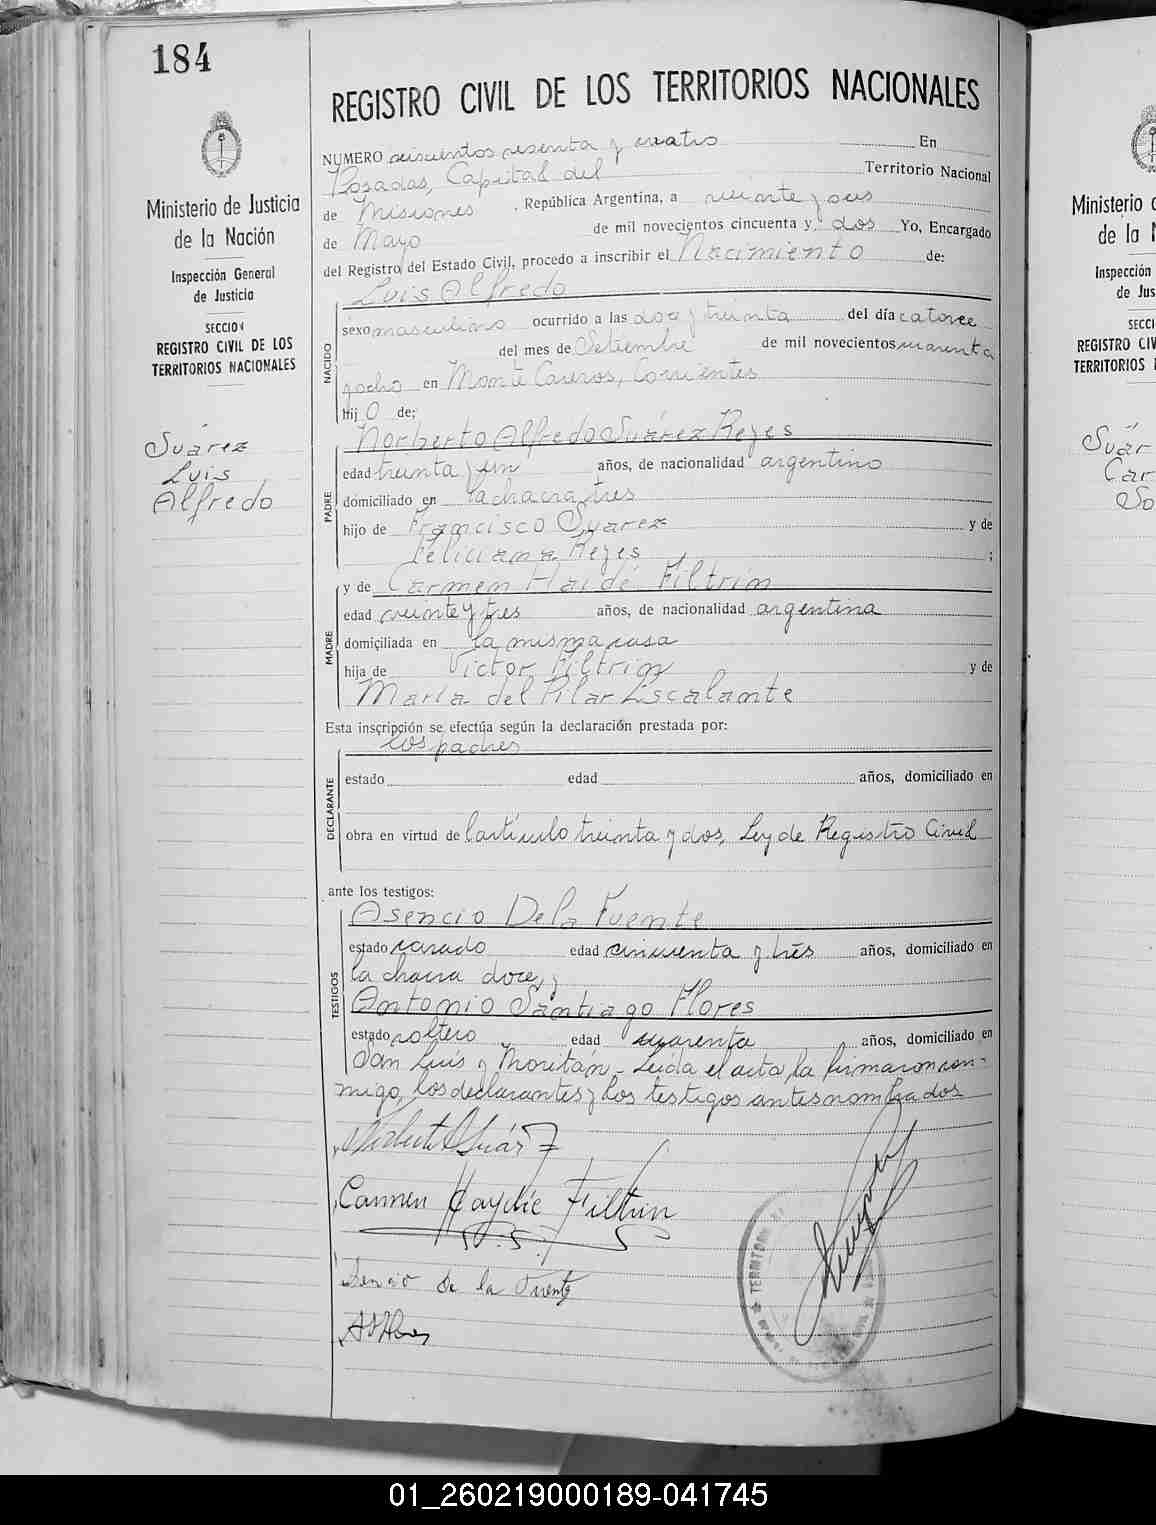 184
Ministerio de Justicia
de la Nación
Inspección General
de Justicia
SECCION
REGISTRO CIVIL DE LOS
TERRITORIOS NACIONALES
Suárez
Luis
Alfredo
REGISTRO CIVIL DE LOS TERRITORIOS NACIONALES
NUMERO seiscientos sesenta y cuatro En
Posadas, Capital del Territorio Nacional
de Misiones, República Argentina, a veinte y seis
de Mayo de mil novecientos cincuenta y dos Yo, Encargado
del Registro del Estado Civil, procedo a inscribir el Nacimiento de:
Luis Alfredo
NACIDO
sexo masculino ocurrido a las doce y treinta del día catorce
del mes de Setiembre de mil novecientos cuarenta
y ocho en Monte Caseros, Corrientes
hijo de:
Norberto Alfredo Suárez Reyes
PADRE
edad treinta y un años, de nacionalidad argentino
domiciliado en la chacra tres
hijo de Francisco Suarez y de
Feliciana Reyes ;
y de Carmen Haidé Filtrin
MADRE
edad veinte y tres años, de nacionalidad argentina
domiciliada en la misma casa
hija de Victor Filtrin y de
María del Pilar Escalante
Esta inscripción se efectúa según la declaración prestada por:
los padres
DECLARANTE
estado edad años, domiciliado en
obra en virtud del artículo treinta y dos, Ley de Registro Civil
ante los testigos:
Asencio De la Fuente
TESTIGOS
estado casado edad cincuenta y trés años, domiciliado en
la chacra doce, y
Antonio Santiago Flores
estado soltero edad cuarenta años, domiciliado en
San Luis y Moritán - Leída el acta, la firmaron con-
migo, los declarantes y los testigos antes nombrados
Norberto A Suárez
Carmen Haydée Filtrin
Asencio De la Fuente
A S Flores
TERRITORIO
Suár
Car
Ministerio
de la
Inspección
de Jus
SECCI
REGISTRO CIV
TERRITORIOS
So
01_260219000189-041745